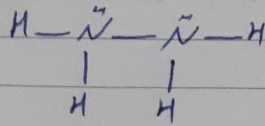 H—N̈—N̈—H
H H